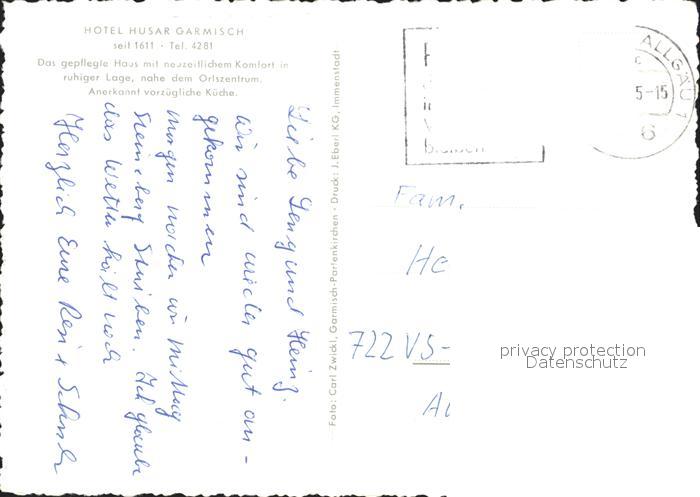 HOTEL HUSAR GARMISCH
seit 1611 · Tel. 4281
Das gepflegte Haus mit neuzeitlichem Komfort in
ruhiger Lage, nahe dem Ortszentrum.
Anerkannt vorzügliche Küche.
Liebe und Heinz.
Wir sind wieder gut an-
gekommen
morgen wir Mittag
Ich glaube
das Wetter hält noch
Herzlich Eure Resi +
Foto: Carl Zwickl, Garmisch-Partenkirchen · Druck: J. Eberl KG, Immenstadt
ALLGÄU 1
5-15
6
Fam.
He
722 VS-
privacy protection
Datenschutz